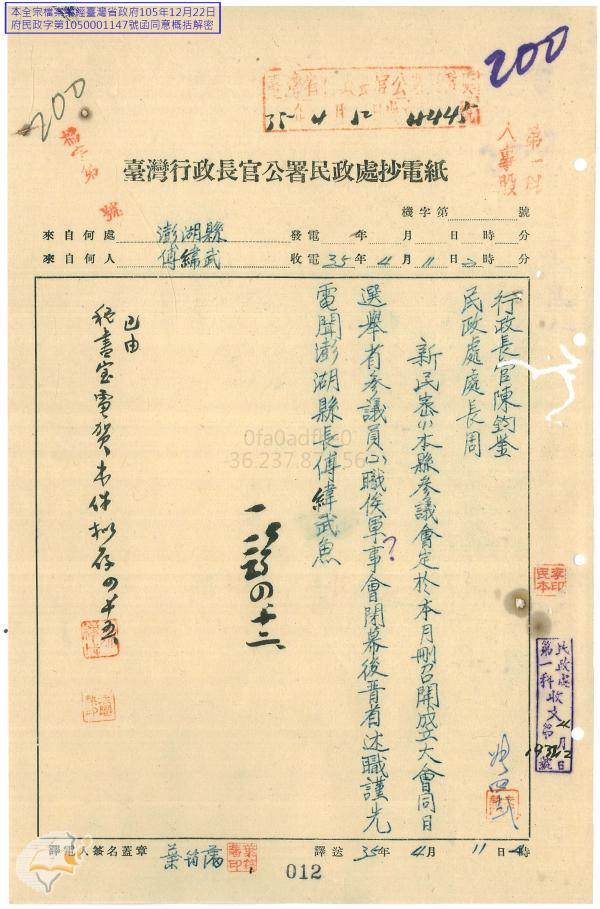 本全宗檔案業經臺灣省政府105年12月22日
府民政字第1050001147號函同意概括解密
200
200
35 4 12 4445
第一科
人事股
號
臺灣行政長官公署民政處抄電紙
機字第 號
來自何處 澎湖縣 發電 年 月 日 時 分
來自何人 傅緯武 收電 35年 4月 11日 時 分
行政長官陳鈞鑒
民政處處長周
新民寒(1)本縣參議會定於本月刪召開成立大會同日
選舉省參議員(2)職俟軍事會閉幕後晋省述職謹先
電聞澎湖縣長傅緯武魚
?
已由
秘書室電賀本件擬存
李印
民本
民政處
第一科收文
4月 日
譯電人簽名蓋章 葉 譯送 35年 4月 11日 時
012
0fa0adf
36.237.87.56